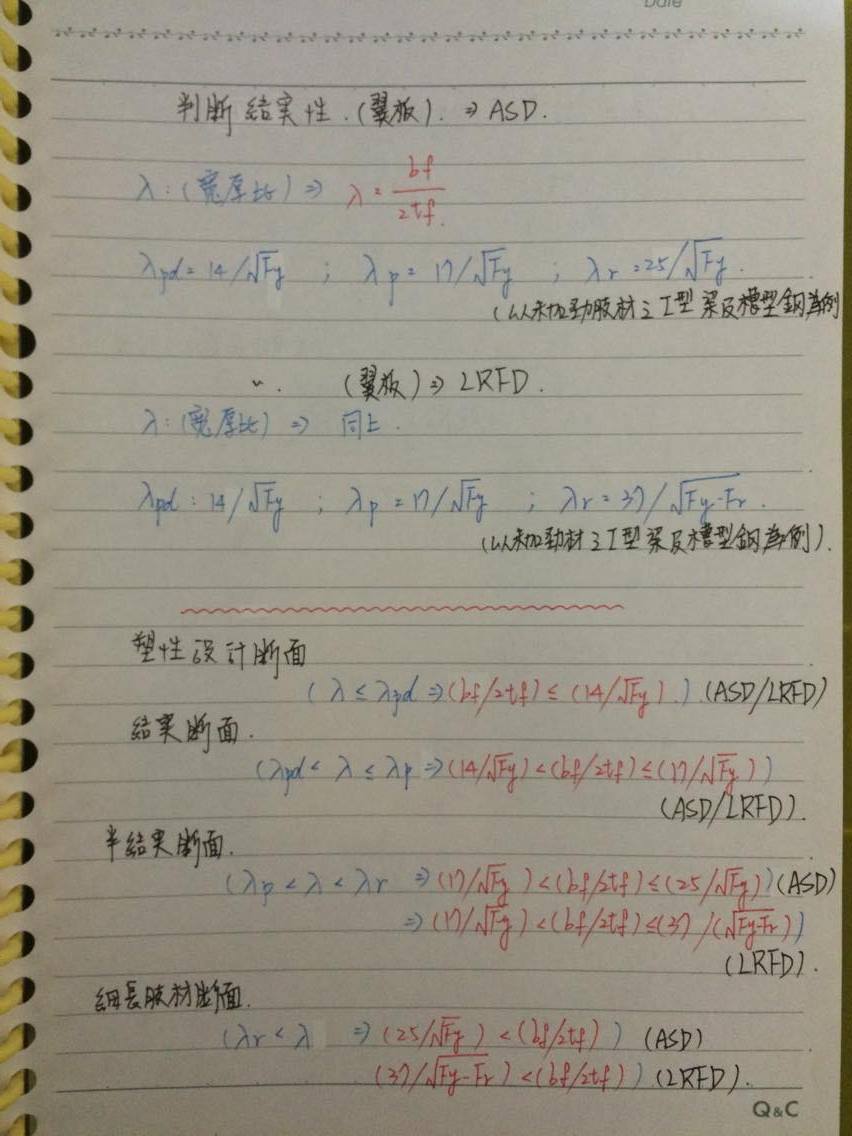 Date
判断結実性.(翼板). ⇒ ASD.
λ:(寬厚比) ⇒ λ = bf/2tf.
λpd = 14/√Fy ; λp = 17/√Fy ; λr = 25/√Fy.
(以未加勁肢材之I型梁及槽型鋼為例
〃. (翼板) ⇒ LRFD.
λ:(寬厚比) ⇒ 同上.
λpd = 14/√Fy ; λp = 17/√Fy ; λr = 37/√Fy-Fr.
(以未加勁材之I型梁及槽型鋼為例).
塑性設計断面
(λ ≤ λpd ⇒ (bf/2tf) ≤ (14/√Fy).) (ASD/LRFD)
結実断面.
(λpd < λ ≤ λp ⇒ (14/√Fy) < (bf/2tf) ≤ (17/√Fy))
(ASD/LRFD).
半結実断面.
(λp < λ < λr ⇒ (17/√Fy) < (bf/2tf) ≤ (25/√Fy)) (ASD)
⇒ (17/√Fy) < (bf/2tf) ≤ (37/(√Fy-Fr))
(LRFD).
細長肢材断面.
(λr < λ ⇒ (25/√Fy) < (bf/2tf)) (ASD)
(37/√Fy-Fr) < (bf/2tf)) (LRFD).
Q&C